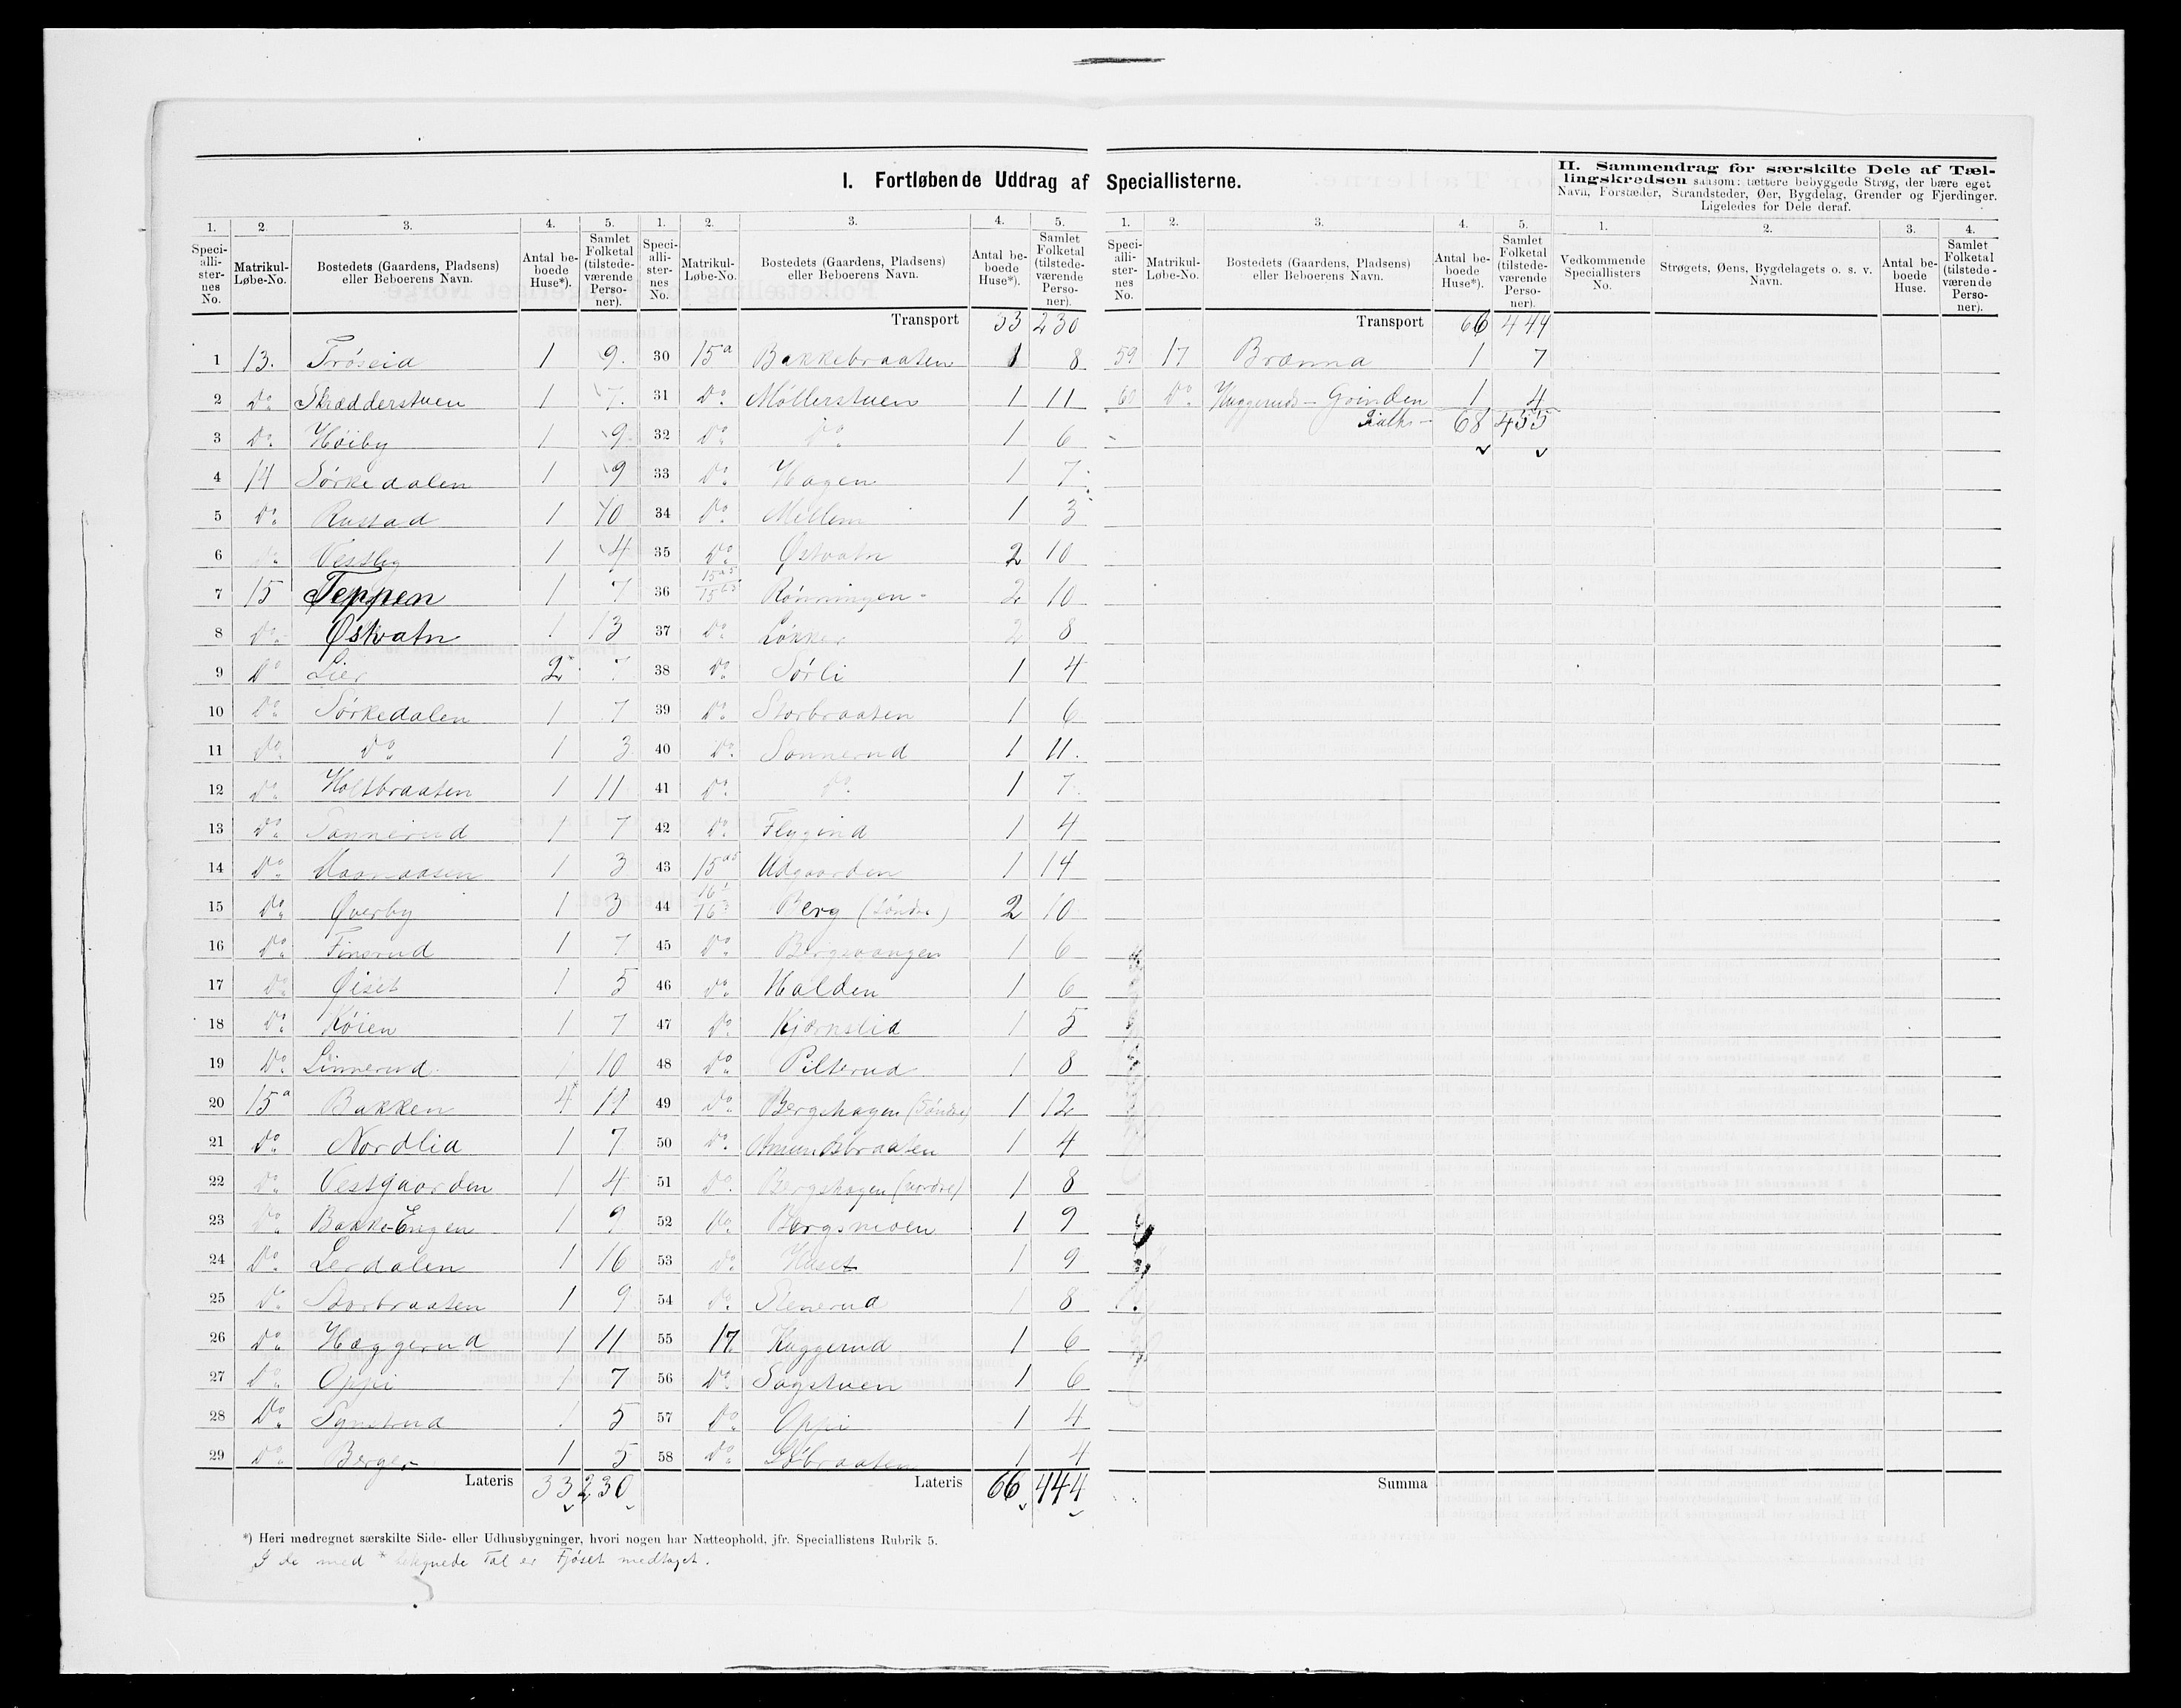 I. Fortløbende Uddrag af Speciallisterne.
II. Sammendrag for særskilte Dele af Tæl-
lingskredsen saasom: tættere bebyggede Strøg, der bære eget
Navn, Forstæder, Strandsteder, Øer, Bygdelag, Grender og Fjerdinger.
Ligeledes for Dele deraf.
1. 2. 3. 4. 5.
Speci-alli-ster-nes No. Matrikul-Løbe-No. Bostedets (Gaardens, Pladsens) eller Beboerens Navn. Antal be-boede Huse*). Samlet Folketal (tilstede-værende Perso-ner).
1 13. Trøseid 1 9.
2 Do Skrædderstuen 1 7.
3 Do Høiby 1 9
4 14 Sørkedalen 1 9
5 Do Rustad 1 10
6 Do Vestby 1 4
7 15 Teppen 1 7
8 Do Østvatn 1 13
9 Do Lier 2* 7
10 Do Sørkedalen 1 7
11 Do Do 1 3
12 Do Holtbraaten 1 11
13 Do Sønnerud 1 7
14 Do Masmaasen 1 3
15 Do Øverby 1 3
16 Do Finerud 1 7
17 Do Øiset 1 5
18 Do Køien 1 7
19 Do Linnerud 1 10
20 15a Bakken 4* 11
21 Do Nordlia 1 7
22 Do Vestgaarden 1 4
23 Do Bakke-Engen 1 9
24 Do Lerdalen 1 16
25 Do Storbraaten 1 9
26 Do Hæggerud 1 11
27 Do Oppi 1 7
28 Do 1 5
29 Do Berger 1 5
Lateris 33 230
1. 2. 3. 4. 5.
Speci-alli-ster-nes No. Matrikul-Løbe-No. Bostedets (Gaardens, Pladsens) eller Beboerens Navn. Antal be-boede Huse*). Samlet Folketal (tilstede-værende Perso-ner).
Transport 33 230
30 15a Bakkebraaten 1 8
31 Do Møllerstuen 1 11
32 Do Do 1 6
33 Do Hagen 1 7
34 Do Millem 1 3
35 Do Østvatn 2 10
36 Rønningen 2 10
37 Do Løkker 2 8
38 Do Sørli 1 4
39 Do Storbraaten 1 6
40 Do Sønnerud 1 11.
41 Do Do 1 7
42 Do Flygind 1 4
43 Udgaarden 1 14
44 Berg (Søndre) 2 10
45 Do Bergsvangen 1 6
46 Do Halden 1 6
47 Do Kjærnslid 1 5
48 Do Pilterud 1 8
49 Do Bergshagen (Søndre) 1 12
50 Do Amundsbraaten 1 4
51 Do Bergshagen (nordre) 1 8
52 Do Bergsmoen 1 9
53 Do Huset 1 9
54 Do Stenerud 1 8
55 17. Huggerud 1 6
56 Do Sagstuen 1 6
57 Do Oppi 1 4
58 Do 1 4
Lateris 66 444
1. 2. 3. 4. 5.
Speci-alli-ster-nes No. Matrikul-Løbe-No. Bostedets (Gaardens, Pladsens) eller Beboerens Navn. Antal be-boede Huse*). Samlet Folketal (tilstede-værende Perso-ner).
Transport 66 444
59 17 Brænna 1 7
60 Do Huggeruds-Grinden 1 4
68 455
Summa
1. 2. 3. 4.
Vedkommende Speciallisters No. Strøgets, Øens, Bygdelagets o. s. v. Navn. Antal be-boede Huse. Samlet Folketal (tilstede-værende Perso-ner).
*) Heri medregnet særskilte Side- eller Udhusbygninger, hvori nogen har Natteophold, jfr. Speciallistens Rubrik 5.
I de med * betegnede Tal er Fjøset medtaget.